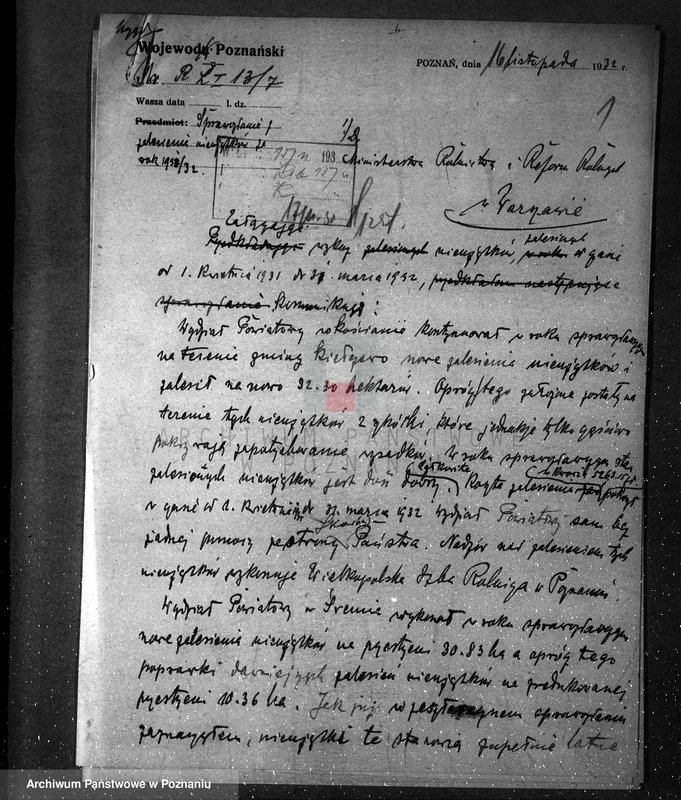 Wojewoda Poznański
POZNAŃ, dnia 16 listopada 1932 r.
Nr. R 13/7
Wasza data l. dz.
Przedmiot: Sprawozdanie
zalesienia nieużytków za
rok 1931/32.
193
1
Ministerstwo Rolnictwa i Reform Rolnych
w Warszawie
Załączając
Przedkładając wykaz zalesionych nieużytków, w roku zalesionych w czasie
od 1. kwietnia 1931 do 31. marca 1932, przedkładam następujące
sprawozdanie komunikuję:
Wydział Powiatowy w Kościanie kontynuował w roku sprawozdawczym
na terenie gminy Kiełczewo nowe zalesienia nieużytków i
zalesił na nowo 32.30 hektarów. Oprócz tego założone zostały na
terenie tych nieużytków 2 szkółki, które jednakże tylko częściowo
pokrywają zapotrzebowanie sadzonek. W roku sprawozdawczym stan
zalesionych nieużytków jest dość dobry. Koszta zalesienia pokrył
w kwocie 5263.15 zł
w czasie od 1. kwietnia do 31. marca 1932 Wydział Powiatowy sam bez
żadnej pomocy ze strony Skarbu Państwa. Nadzór nad zalesieniem tych
nieużytków wykonuje Wielkopolska Izba Rolnicza w Poznaniu.
Wydział Powiatowy w Śremie wykonał w roku sprawozdawczym
nowe zalesienia nieużytków na przestrzeni 30.83 ha a oprócz tego
poprawki dawniejszych zalesień nieużytków na zredukowanej
przestrzeni 10.36 ha. Jak już w zeszłorocznem sprawozdaniu
zaznaczyłem, nieużytki te stanowią zupełnie lotne
ARCHIWUM PAŃSTWOWE
W POZNANIU
Archiwum Państwowe w Poznaniu